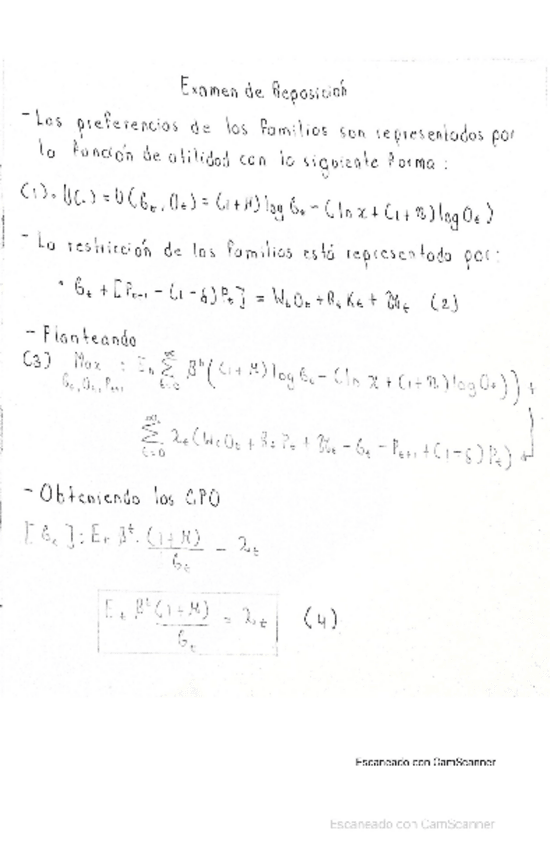 Examen de Reposición
- Las preferencias de las familias son representadas por
la función de utilidad con la siguiente forma:
(1). U(.) = U(G_t, O_t) = (1+μ) log G_t - (ln x + (1+n) log O_t)
- La restricción de las familias está representada por:
• G_t + [P_{t+1} - (1-δ)P_t] = W_t O_t + R_t K_t + π_t (2)
- Planteando
(3) Max : E_t ∑ β^t ((1+μ) log G_t - (ln x + (1+n) log O_t)) +
G_t, O_t, P_{t+1} t=0
∑ λ_t (W_t O_t + R_t P_t + π_t - G_t - P_{t+1} + (1-δ)P_t)
t=0
- Obteniendo las CPO
[G_t]: E_t β^t · (1+μ) / G_t - λ_t
E_t β^t (1+μ) / G_t = λ_t (4)
Escaneado con CamScanner
Escaneado con CamScanner